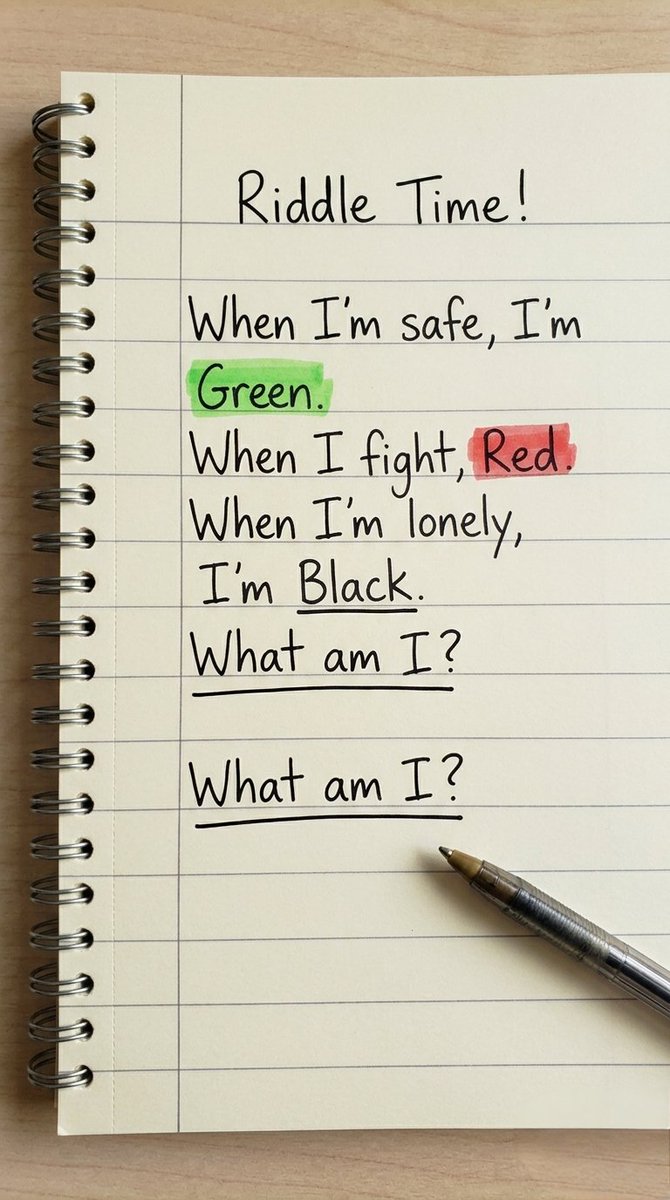 Riddle Time!
When I'm safe, I'm
Green.
When I fight, Red.
When I'm lonely,
I'm Black.
What am I?
What am I?